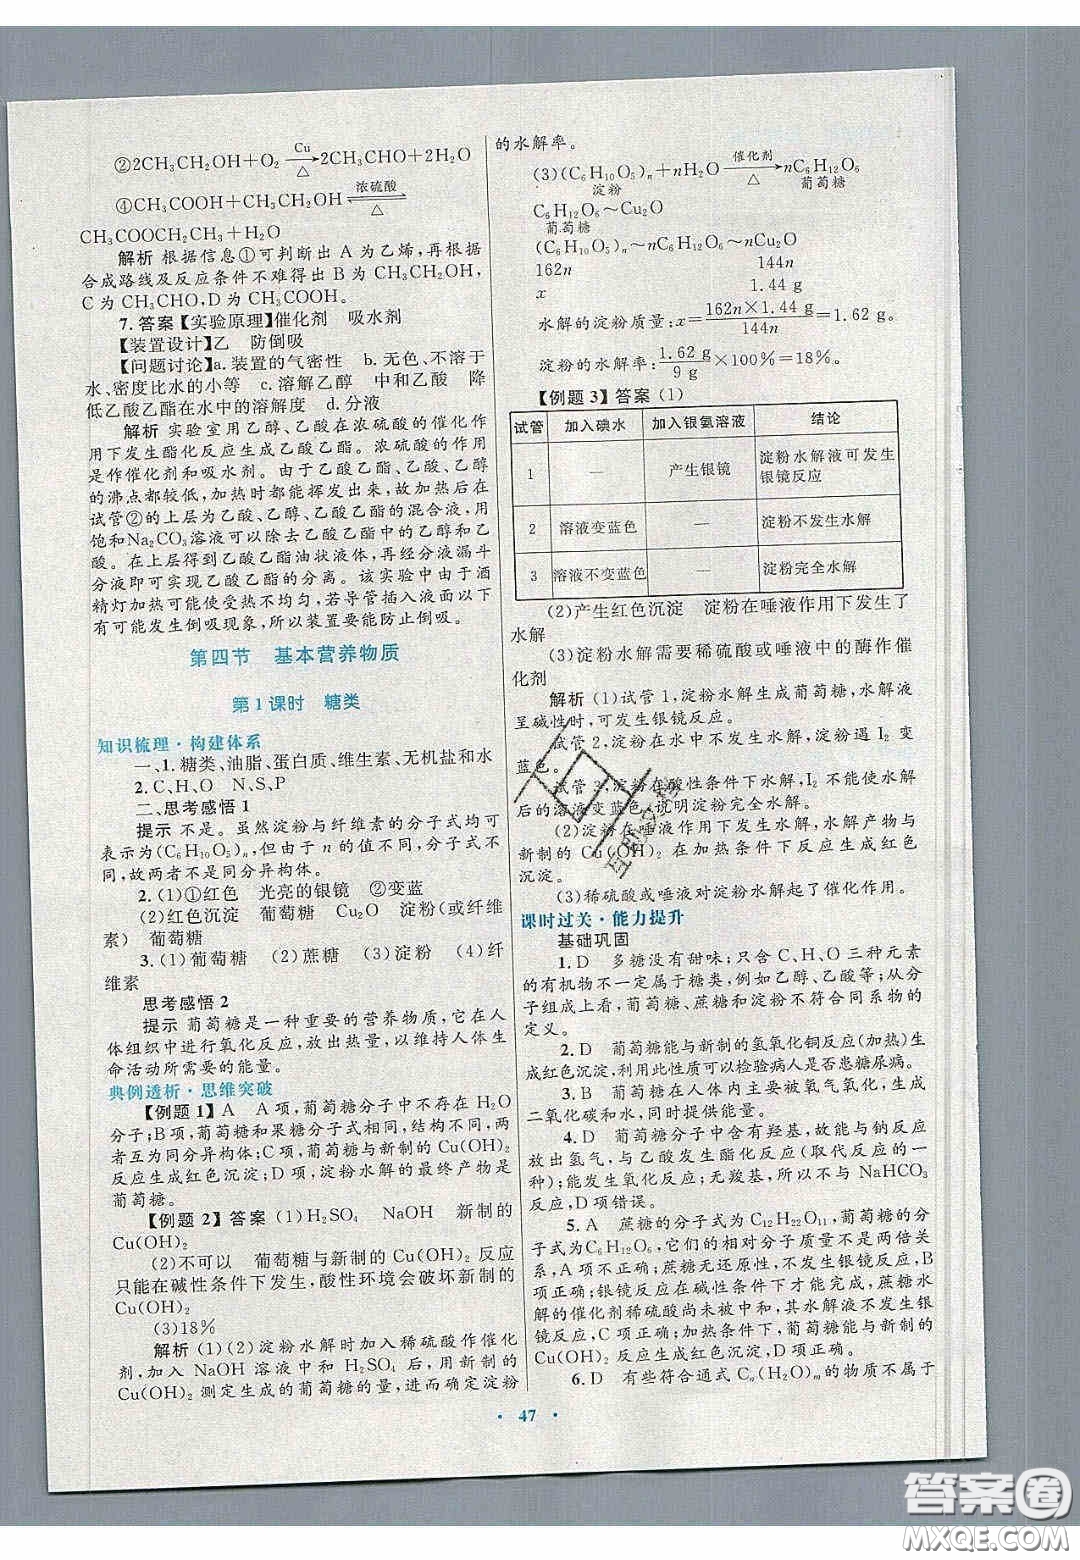 ②2CH₃CH₂OH+O₂ Cu→△ 2CH₃CHO+2H₂O
④CH₃COOH+CH₃CH₂OH 浓硫酸⇌△
CH₃COOCH₂CH₃+H₂O
解析 根据信息①可判断出 A 为乙烯,再根据
合成路线及反应条件不难得出 B 为 CH₃CH₂OH,
C 为 CH₃CHO,D 为 CH₃COOH。
7.答案【实验原理】催化剂 吸水剂
【装置设计】乙 防倒吸
【问题讨论】a.装置的气密性 b.无色、不溶于
水、密度比水的小等 c.溶解乙醇 中和乙酸 降
低乙酸乙酯在水中的溶解度 d.分液
解析 实验室用乙醇、乙酸在浓硫酸的催化作
用下发生酯化反应生成乙酸乙酯。浓硫酸的作用
是作催化剂和吸水剂。由于乙酸乙酯、乙酸、乙醇
的沸点都较低,加热时都能挥发出来,故加热后在
试管②的上层为乙酸、乙醇、乙酸乙酯的混合液,用
饱和Na₂CO₃溶液可以除去乙酸乙酯中的乙醇和乙
酸。在上层得到乙酸乙酯油状液体,再经分液漏斗
分液即可实现乙酸乙酯的分离。该实验中由于酒
精灯加热可能使受热不均匀,若导管插入液面以下
有可能发生倒吸现象,所以装置要能防止倒吸。
第四节 基本营养物质
第1课时 糖类
知识梳理·构建体系
一、1.糖类、油脂、蛋白质、维生素、无机盐和水
2.C、H、O N、S、P
二、思考感悟 1
提示 不是。虽然淀粉与纤维素的分子式均可
表示为(C₆H₁₀O₅)ₙ,但由于 n 的值不同,分子式不
同,故两者不是同分异构体。
2.(1)①红色 光亮的银镜 ②变蓝
(2)红色沉淀 葡萄糖 Cu₂O 淀粉(或纤维
素) 葡萄糖
3.(1)葡萄糖 (2)蔗糖 (3)淀粉 (4)纤
维素
思考感悟 2
提示 葡萄糖是一种重要的营养物质,它在人
体组织中进行氧化反应,放出热量,以维持人体生
命活动所需要的能量。
典例透析·思维突破
【例题 1】A A 项,葡萄糖分子中不存在 H₂O
分子;B 项,葡萄糖和果糖分子式相同,结构不同,两
者互为同分异构体;C 项,葡萄糖与新制的 Cu(OH)₂
反应生成红色沉淀;D 项,淀粉水解的最终产物是
葡萄糖。
【例题 2】答案 (1)H₂SO₄ NaOH 新制的
Cu(OH)₂
(2)不可以 葡萄糖与新制的 Cu(OH)₂ 反应
只能在碱性条件下发生,酸性环境会破坏新制的
Cu(OH)₂
(3)18%
解析 (1)(2)淀粉水解时加入稀硫酸作催化
剂,加入 NaOH 溶液中和 H₂SO₄ 后,用新制的
Cu(OH)₂ 测定生成的葡萄糖的量,进而确定淀粉
的水解率。
(3)(C₆H₁₀O₅)ₙ+nH₂O 催化剂→△ nC₆H₁₂O₆
淀粉 葡萄糖
C₆H₁₂O₆～Cu₂O
葡萄糖
(C₆H₁₀O₅)ₙ～nC₆H₁₂O₆～nCu₂O
162n 144n
x 1.44 g
水解的淀粉质量:x=162n×1.44 g/144n=1.62 g。
淀粉的水解率:1.62 g/9 g×100%=18%。
【例题 3】答案 (1)
试管 加入碘水 加入银氨溶液 结论
1 — 产生银镜 淀粉水解液可发生
银镜反应
2 溶液变蓝色 — 淀粉不发生水解
3 溶液不变蓝色 — 淀粉完全水解
(2)产生红色沉淀 淀粉在唾液作用下发生了
水解
(3)淀粉水解需要稀硫酸或唾液中的酶作催
化剂
解析 (1)试管 1,淀粉水解生成葡萄糖,水解液
呈碱性时,可发生银镜反应。
试管 2,淀粉在水中不发生水解,淀粉遇 I₂ 变
蓝色。
试管 3,淀粉在酸性条件下水解,I₂ 不能使水解
后的溶液变蓝色,说明淀粉完全水解。
(2)淀粉在唾液作用下发生水解,水解产物与
新制的 Cu(OH)₂ 在加热条件下反应生成红色
沉淀。
(3)稀硫酸或唾液对淀粉水解起了催化作用。
课时过关·能力提升
基础巩固
1.D 多糖没有甜味;只含 C、H、O 三种元素
的有机物不一定属于糖类,例如乙醇、乙酸等;从分
子组成上看,葡萄糖、蔗糖和淀粉不符合同系物的
定义。
2.D 葡萄糖能与新制的氢氧化铜反应(加热)生
成红色沉淀,利用此性质可以检验病人是否患糖尿病。
3.B 葡萄糖在人体内主要被氧气氧化,生成
二氧化碳和水,同时提供能量。
4.D 葡萄糖分子中含有羟基,故能与钠反应
放出氢气,与乙酸发生酯化反应(取代反应的一
种);能发生氧化反应;无羧基,所以不与 NaHCO₃
反应,D 项错误。
5.A 蔗糖的分子式为 C₁₂H₂₂O₁₁,葡萄糖的分
子式为C₆H₁₂O₆,两者的相对分子质量不是两倍关
系,A 项不正确;蔗糖无还原性,不发生银镜反应,B
项正确;银镜反应在碱性条件下才能完成,蔗糖水
解的催化剂稀硫酸尚未被中和,其水解液不发生银
镜反应,C 项正确;加热条件下,葡萄糖能与新制的
Cu(OH)₂ 反应生成红色沉淀,D 项正确。
6.D 有些符合通式 Cₙ(H₂O)ₘ 的物质不属于
·47·
答案圈
MXQE.COM